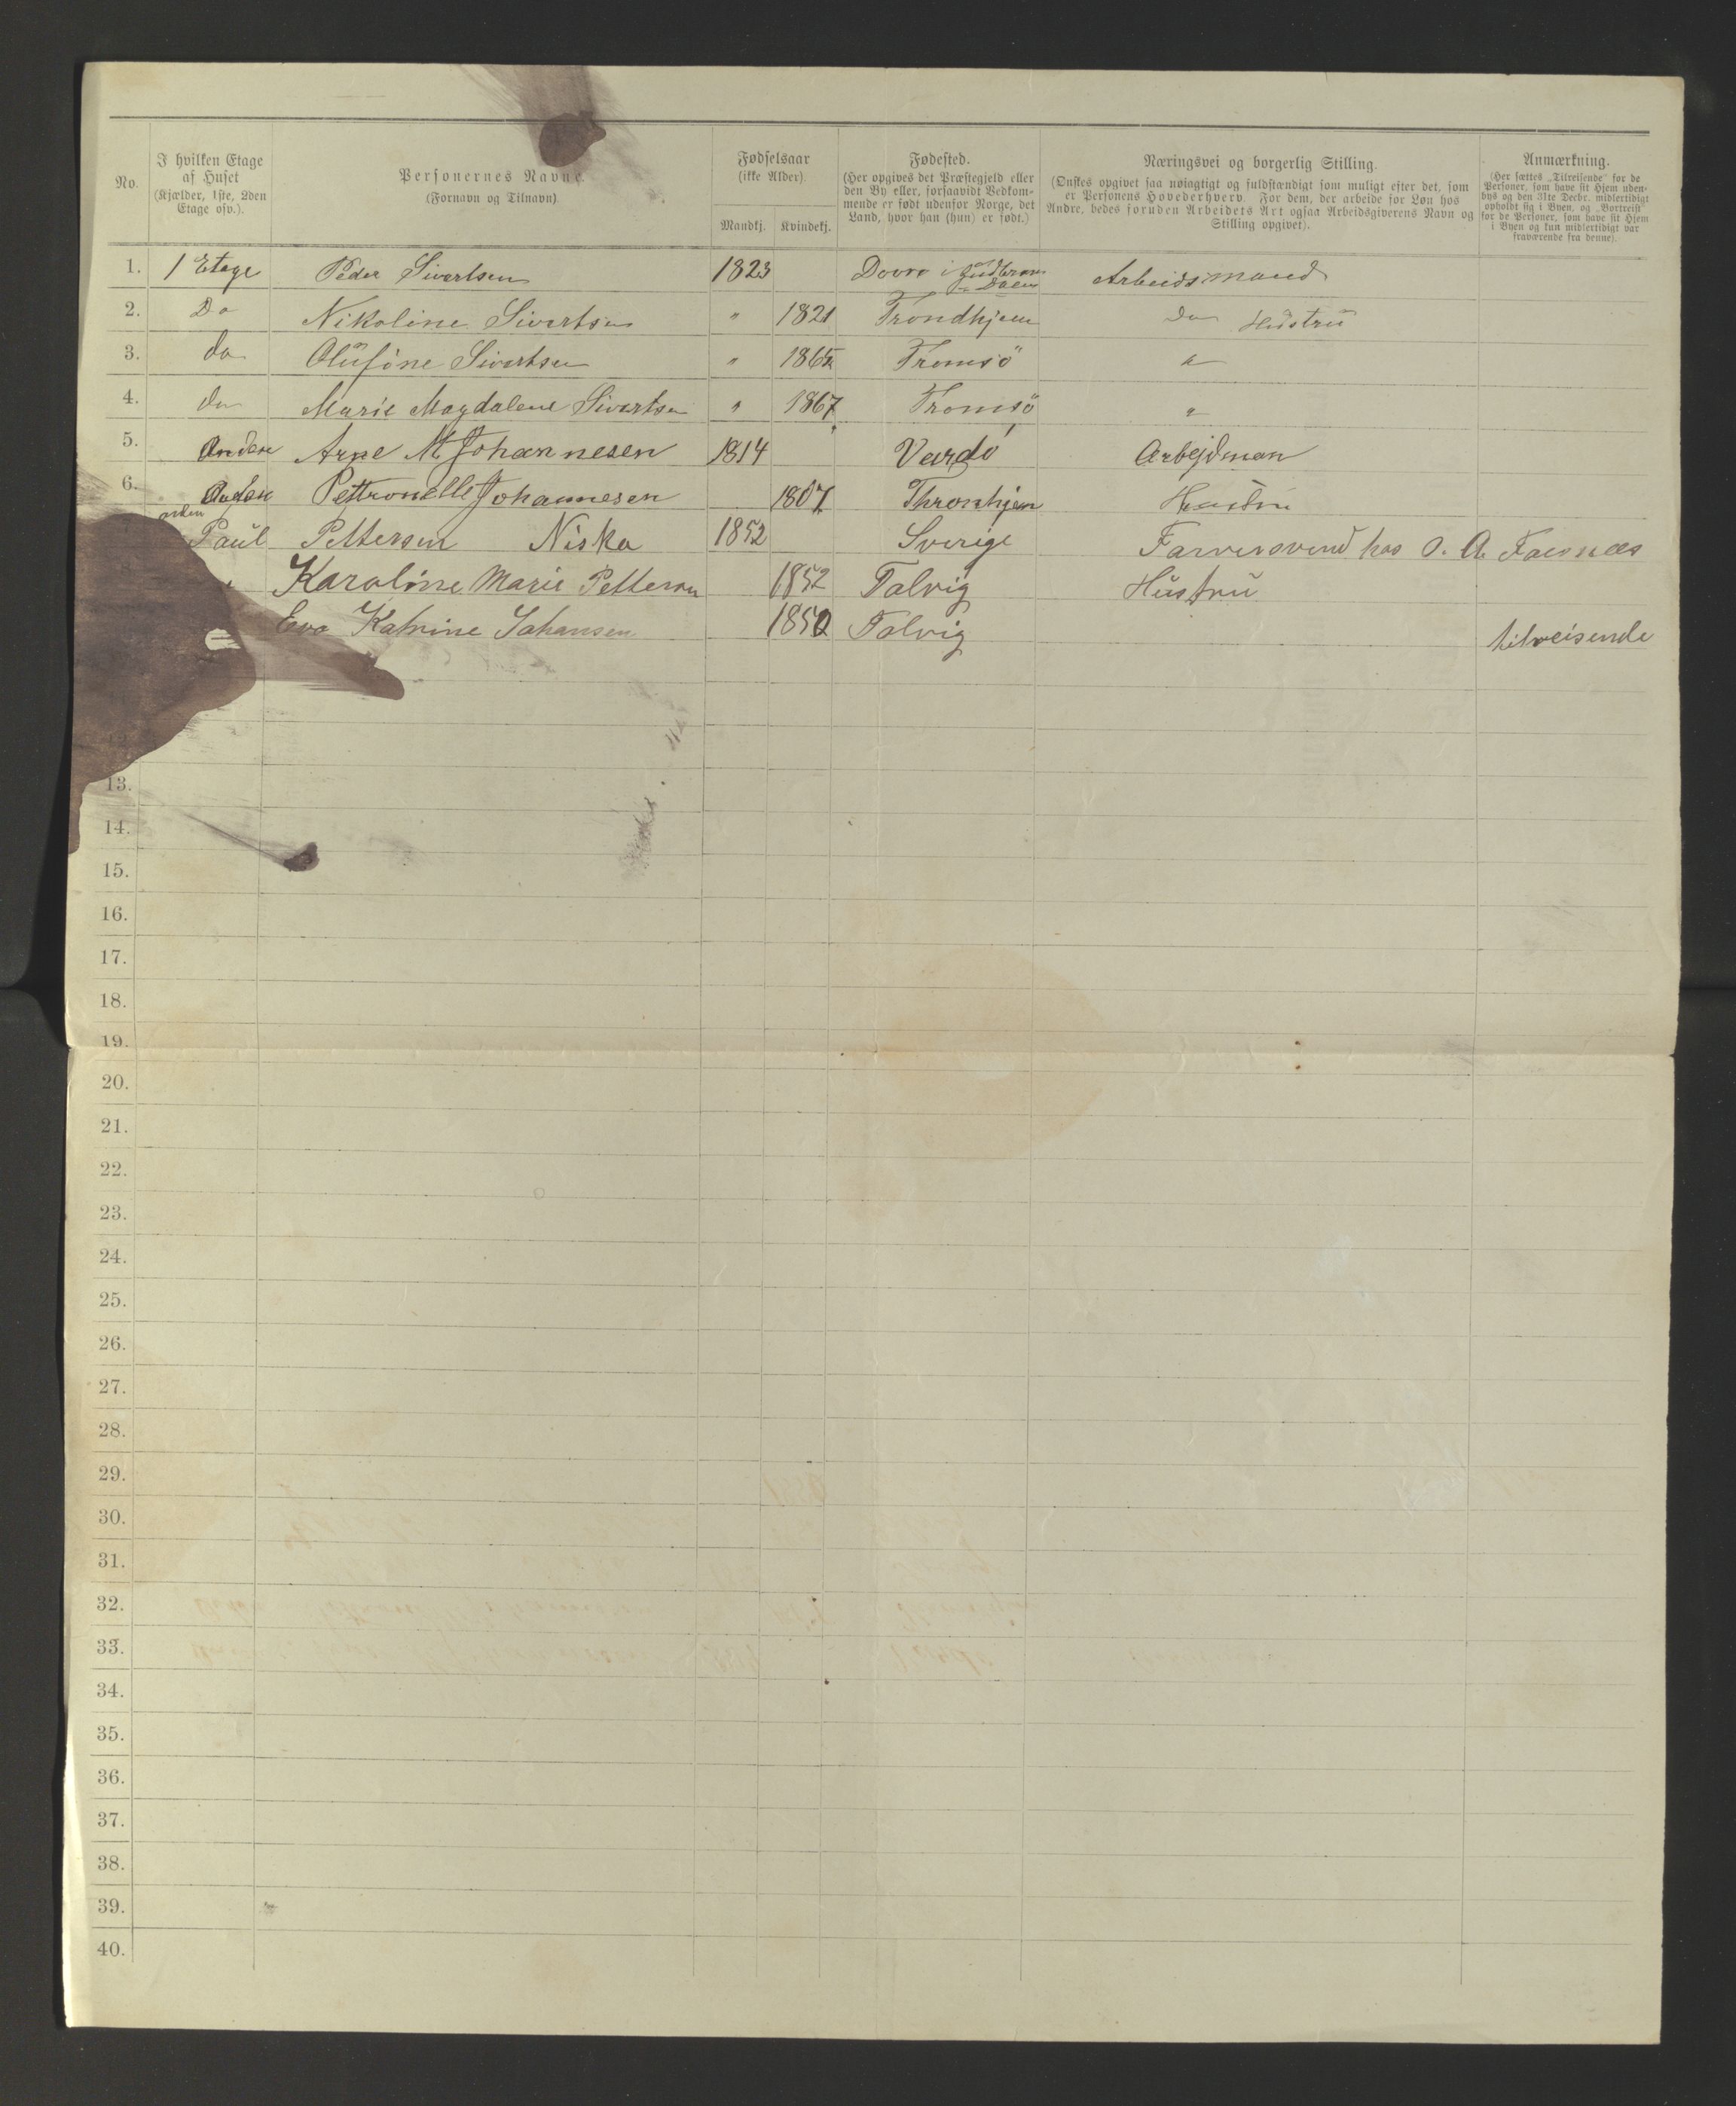 No.
I hvilken Etage
af Huset
(Kjælder, 1ste, 2den
Etage osv.).
Personernes Navne.
(Fornavn og Tilnavn)
Fødselsaar
(ikke Alder)
Mandkj. Kvindekj.
Fødested.
(Her opgives det Præstegjeld eller
den By eller, forsaavidt Vedkom-
mende er født udenfor Norge, det
Land, hvor han (hun) er født.)
Næringsvei og borgerlig Stilling.
(Ønskes opgivet saa nøiagtigt og fuldstændigt som muligt efter det, som
er Personens Hovederhverv. For dem, der arbeide for Løn hos
Andre, bedes foruden Arbeidets Art ogsaa Arbeidsgiverens Navn og
Stilling opgivet).
Anmærkning.
(Her sættes „Tilreisende" for de
Personer, som have sit Hjem uden-
bys og den 31te Decbr. midlertidigt
opholdt sig i Byen, og „Bortreist"
for de Personer, som have sit Hjem
i Byen og kun midlertidigt var
fraværende fra denne).
1. 1 Etage Peder Sivertsen 1823 Dovre i Gudbrands Dalen Arbeidsmand
2. Do Nikoline Sivertsen " 1821 Trondhjem Do Hustru
3. do Olufine Sivertsen " 1865 Tromsö "
4. do Marie Magdalene Sivertsen " 1867 Tromsö "
5. Anden Arne M Johannesen 1814 Vardö Arbejdman
6. Anden Pettronelle Johannesen 1807 Thronhjem Hustru
anden Paul Pettersen Niska 1852 Sverige Farversvend hos O. A. Faesnæs
Karoline Marie Pettersen 1852 Talvig Hustru
Eva Katrine Johansen 1850 Talvig tilreisende
13.
14.
15.
16.
17.
18.
19.
20.
21.
22.
23.
24.
25.
26.
27.
28.
29.
30.
31.
32.
33.
34.
35.
36.
37.
38.
39.
40.